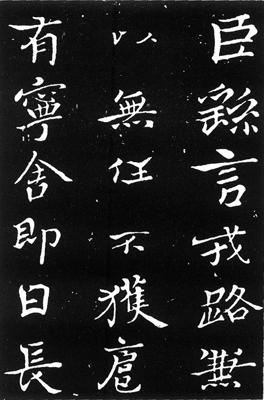 臣繇言戎路兼
以無任不獲扈
有寧舍即日長